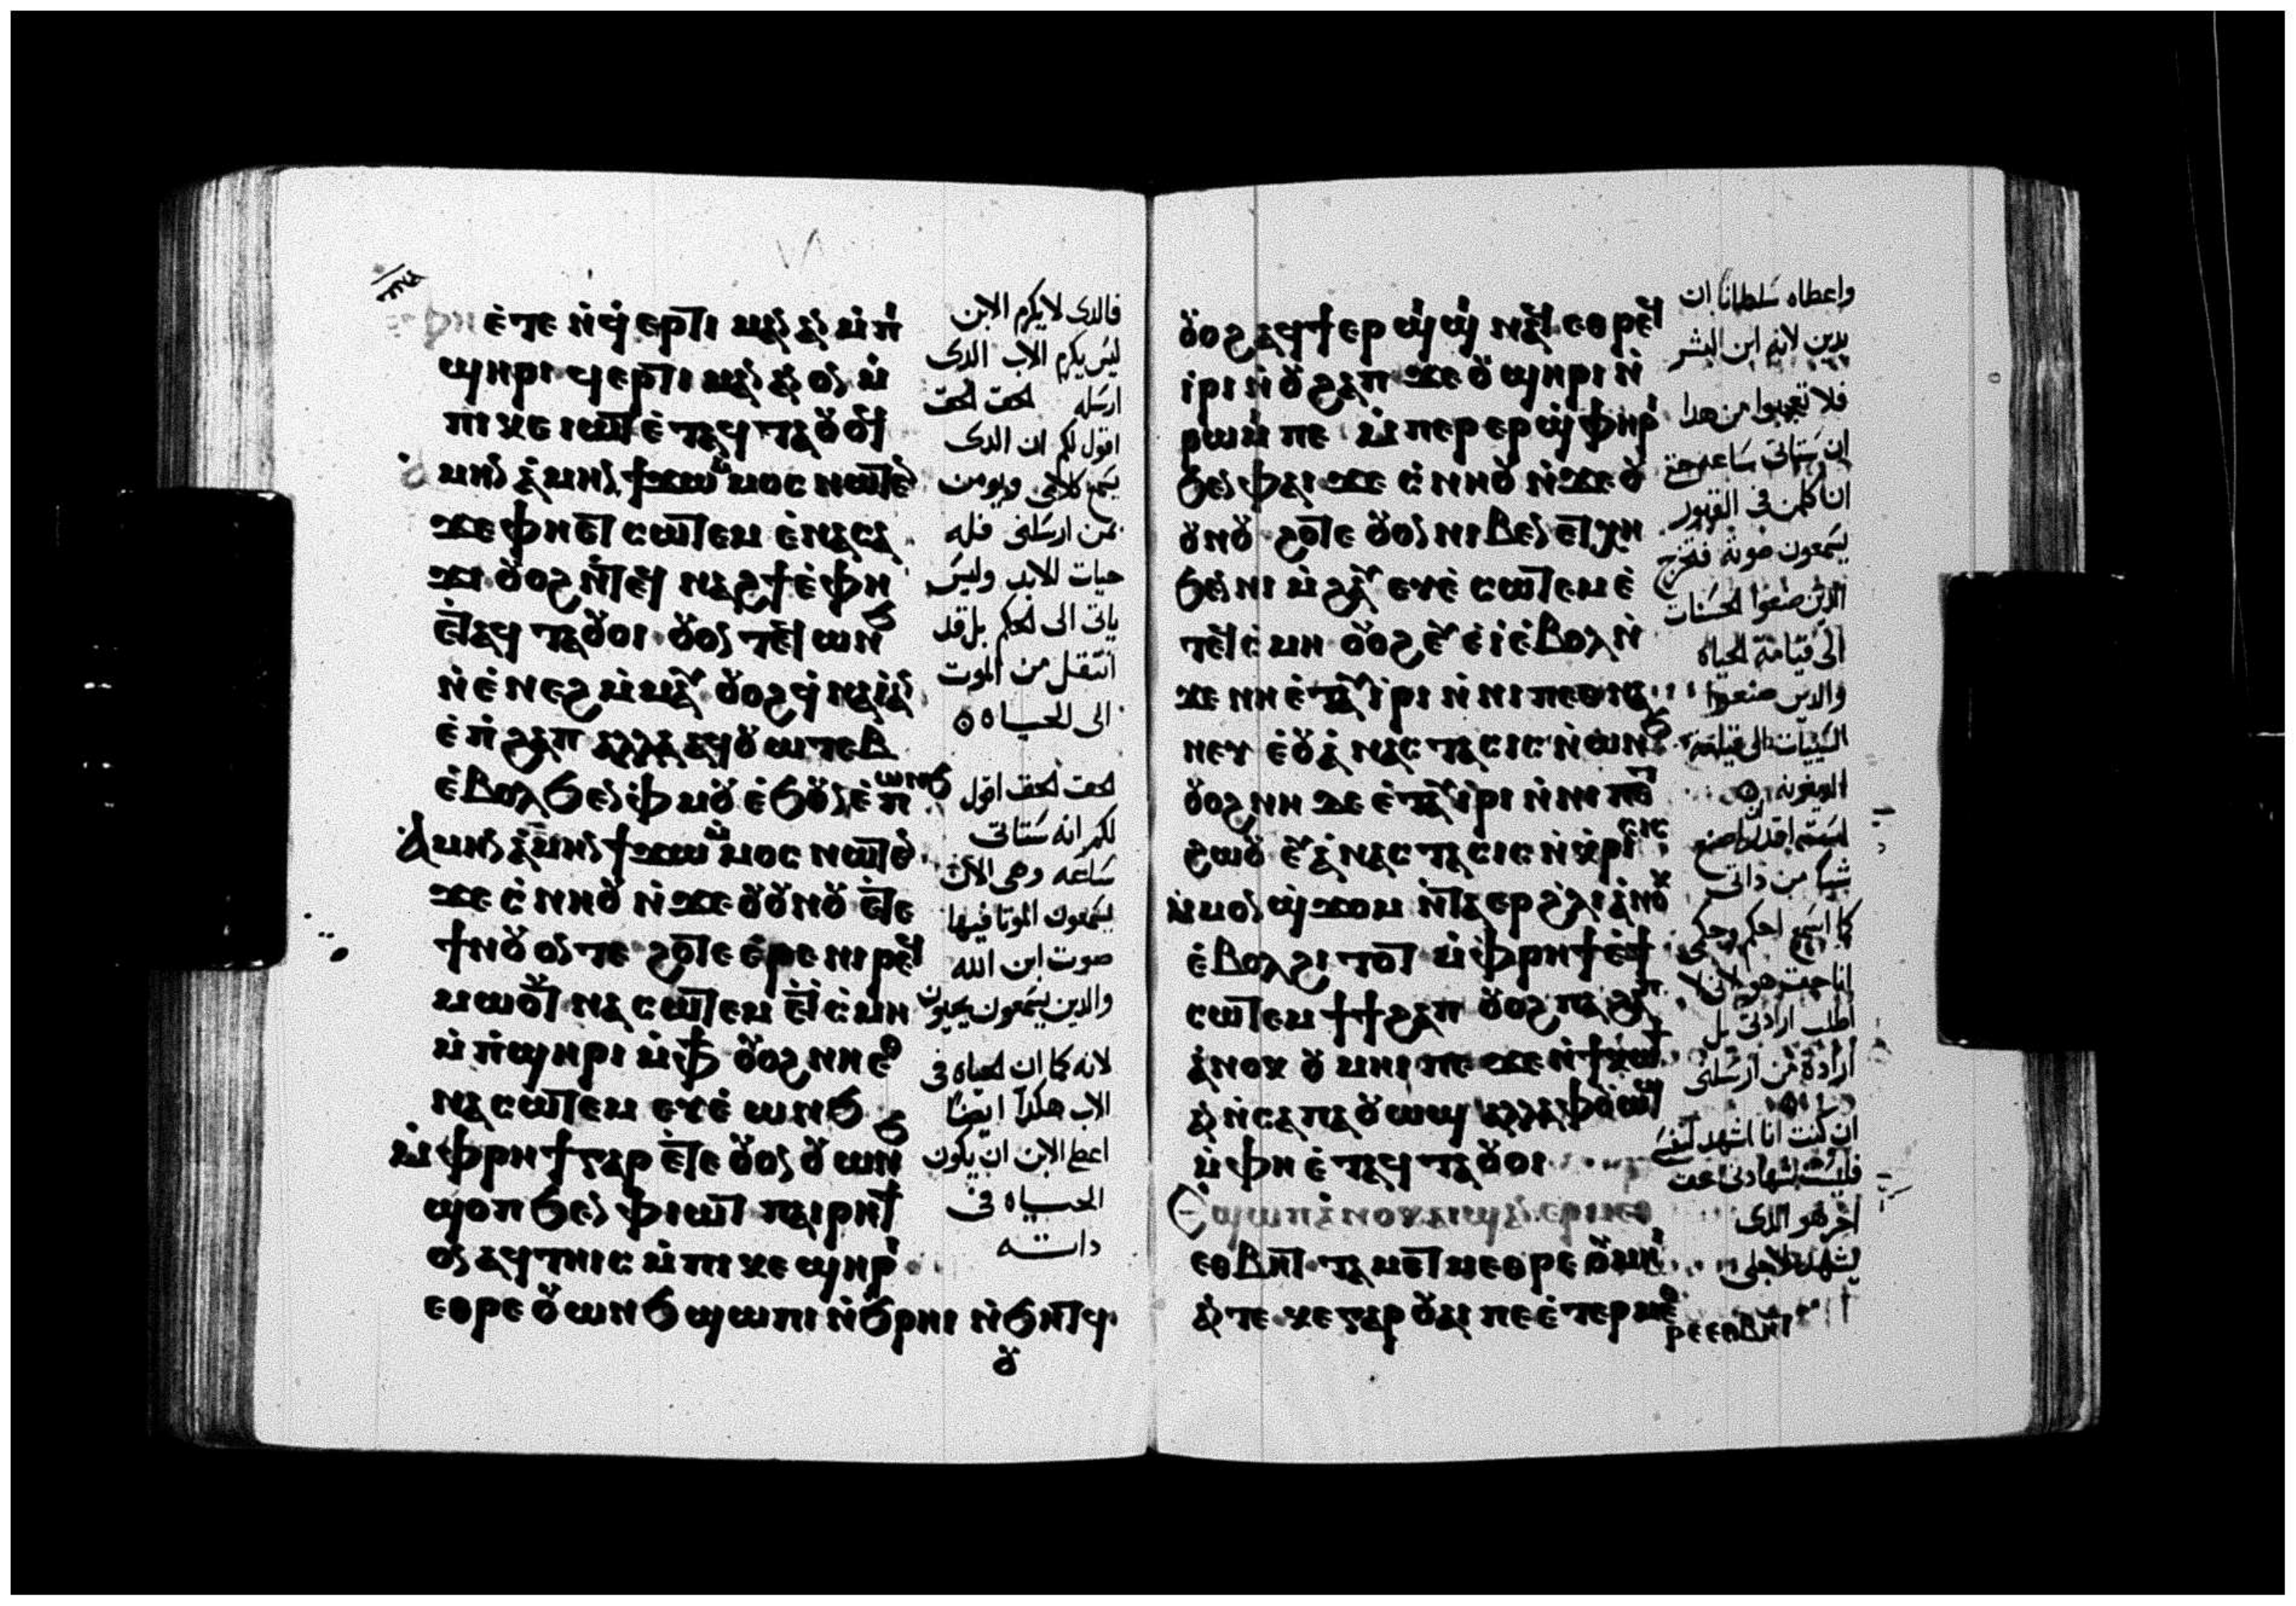 ⲫⲏ ⲉⲧⲉ ⲛϥ ⲉⲣⲧⲓ ⲙⲁⲓⲁ ⲙⲡ
ϣⲏⲣⲓ ϥⲉⲣⲧⲓ ⲙⲁⲓⲁ ⲟⲛ ⲙ
ⲡⲓⲕⲉⲓⲱⲧ ⲉⲧⲁϥⲧⲁⲟⲩⲟⲓ
ⲁⲙⲏⲛ ⲁⲙⲏⲛ ϯϫⲱ ⲙⲙⲟⲥ ⲛⲱⲧⲉ
ϫⲉ ⲫⲏ ⲉⲧ ⲥⲱⲧⲉⲙ ⲉⲛⲁⲥⲁ
ϫⲓ ⲟⲩⲟϩ ⲛⲧⲉϥ ⲛⲁϩϯ ⲉⲫⲏ
ⲉⲧⲁϥ ⲧⲁⲟⲩⲟⲓ ⲟⲩⲟⲛ ⲧⲉϥ ⲱⲛϧ
ⲛⲉⲛⲉϩ ⲙⲙⲁⲩ ⲟⲩⲟϩ ϥⲛⲁⲓⲁⲛ
ⲉⲡϩⲁⲡ ⲁⲗⲗⲁ ⲁϥⲟⲩⲱⲧⲉⲃ
ⲉⲃⲟⲗϧⲉⲛ ⲫⲙⲟⲩ ⲉϧⲟⲩⲛ ⲉⲡ ⲱⲛϧ
ⲁⲙⲏⲛ ⲁⲙⲏⲛ ϯϫⲱ ⲙⲙⲟⲥ ⲛⲱⲧⲉ
ϫⲉ ⲥⲛⲏⲟⲩ ⲛϫⲉ ⲟⲩⲟⲩⲛⲟⲩ ⲉⲧⲉ
ϯⲛⲟⲩ ⲟⲛ ⲧⲉ ϩⲟⲧⲉ ⲉⲣⲉ ⲛⲓⲣⲉϥ
ⲙⲱⲟⲩⲧ ⲛⲁⲥⲱⲧⲉⲙ ⲉⲧⲥⲙⲏ
ⲙⲡϣⲏⲣⲓ ⲙⲫϯ ⲟⲩⲟϩ ⲛⲏⲉⲑ
ⲛⲁⲥⲱⲧⲉⲙ ⲉⲩⲉ ⲱⲛϧ
ⲙⲫⲣⲏϯ ⲅⲁⲣ ⲉⲧⲉ ⲟⲩⲟⲛ ⲟⲩ ⲱⲛϧ
ϣⲟⲡ ϧⲉⲛ ⲫⲓⲱⲧ ⲡⲁⲓⲣⲏϯ
ⲟⲛ ⲁϥⲧⲏⲓⲥ ⲙⲡⲓⲕⲉ ϣⲏⲣⲓ
ⲉⲑⲣⲉ ⲟⲩⲱⲛϧ ϣⲱⲡⲓ ⲛϧⲣⲏⲓ ⲛϧⲏⲧϥ
ⲟⲩ
فالدى لا يكرم الابن
ليس يكرم الاب الدى
ارسله الحق الحق
اقول لكم ان الدى
يسمع كلامى ويومن
بمن ارسلنى فله
حيات الابد وليس
ياتى الى الحكم بل قد
انتقل من الموت
الى الحياه
الحق الحق اقول
لكم انه ستاتى
ساعه وهى الان
يسمعون الموتا فيها
صوت ابن الله
والدين يسمعون يحيون
لانه كما ان الحياه فى
الاب هكدا ايضا
اعطا الابن ان يكون
الحياه فى
داته
ⲟⲩⲟϩ ⲁϥϯ ⲉⲣϣⲓϣⲓ ⲛⲁϥ ⲉⲑⲣⲉϥ
ⲓⲣⲓ ⲛⲟⲩϩⲁⲡ ϫⲉ ⲟⲩϣⲏⲣⲓ ⲛ
ⲣⲱⲙⲓ ⲡⲉ ⲙⲡⲉⲣⲉⲣϣⲫⲏⲣⲓ
ϧⲉⲛ ⲫⲁⲓ ϫⲉ ⲥⲛⲏⲟⲩ ⲛϫⲉ ⲟⲩ
ⲟⲩⲛⲟⲩ ϩⲟⲧⲉ ⲟⲩⲟⲛ ⲛⲓⲃⲉⲛ ⲉⲧⲭⲏ
ϧⲉⲛ ⲛⲓ ⲙϩⲁⲩ ⲉⲩⲉ ⲥⲱⲧⲉⲙ ⲉ
ⲧⲉϥⲥⲙⲏ ⲟⲩⲟϩ ⲉⲩⲉⲓ ⲉⲃⲟⲗ ⲛ
ϫⲉ ⲛⲏ ⲉⲧⲁⲩⲓⲣⲓ ⲛⲛⲓⲡⲉⲑⲛⲁ
ⲛⲉⲩ ⲉⲟⲩⲁⲛⲁⲥⲧⲁⲥⲓⲥ ⲛⲱⲛϧ
ⲟⲩⲟϩ ⲛⲏ ⲇⲉ ⲉⲧⲁⲩⲓⲣⲓ ⲛⲛⲓⲡⲉⲧ
ϩⲱⲟⲩ ⲉⲩⲁⲛⲁⲥⲧⲁⲥⲓⲥ ⲛⲕⲣⲓⲥⲓⲥ
ⲙⲙⲟⲛ ϣϫⲟⲙ ⲛⲧⲁⲉⲣ ϩⲗⲓ ⲁⲛⲟⲕ
ⲉⲃⲟⲗϩⲓⲧⲟⲧ ⲙⲫⲣⲏϯ ⲉϯ
ⲥⲱⲧⲉⲙ ϯϯϩⲁⲡ ⲟⲩⲟϩ ⲡⲁϩⲁⲡ
ⲁⲛⲟⲕ ⲟⲩⲙⲏⲓ ⲡⲉ ϫⲉ ⲛϯⲕⲱϯ
ⲁⲛ ⲛⲥⲁ ⲡⲁⲟⲩⲱϣ ⲁⲗⲗⲁ ⲫⲟⲩⲱϣ
ⲙⲫⲏ ⲉⲧⲁϥⲧⲁⲟⲩⲟⲓ
Ⲉϣⲱⲡ ⲁⲛⲟⲕ ⲁⲓϣⲁⲛⲉⲣⲙⲉⲑ
ⲉⲑⲃⲏⲧ ⲧⲁⲙⲉⲧⲙⲉⲑⲣⲉ ⲟⲩⲙⲏⲓ
ⲁⲛ ⲧⲉ ⲕⲉ ⲅⲁⲣ ⲟⲩⲁⲓ ⲡⲉ ⲉⲧⲉⲣⲙⲉⲑ
ⲣⲉ ⲉⲑⲃⲏⲧ
واعطاه سلطانا ان
يدين لانه ابن البشر
فلا تعجبوا من هدا
ان ستاتى ساعه حتى
ان كلمن فى القبور
يسمعون صوته فتخرج
الدين صنعوا الحسنات
الى قيامة الحياه
والدين صنعوا
السيئات الى قيامة
الدينونه
لست اقدر ان اصنع
شيا من داتى
كما اسمع احكم وحكمى
انا حق هو لانى لا
اطلب ارادتى بل
ارادة من ارسلنى
ان كنت انا اشهد لنفسى
فليست شهادتى حق
اخر هو الدى
يشهد لاجلى